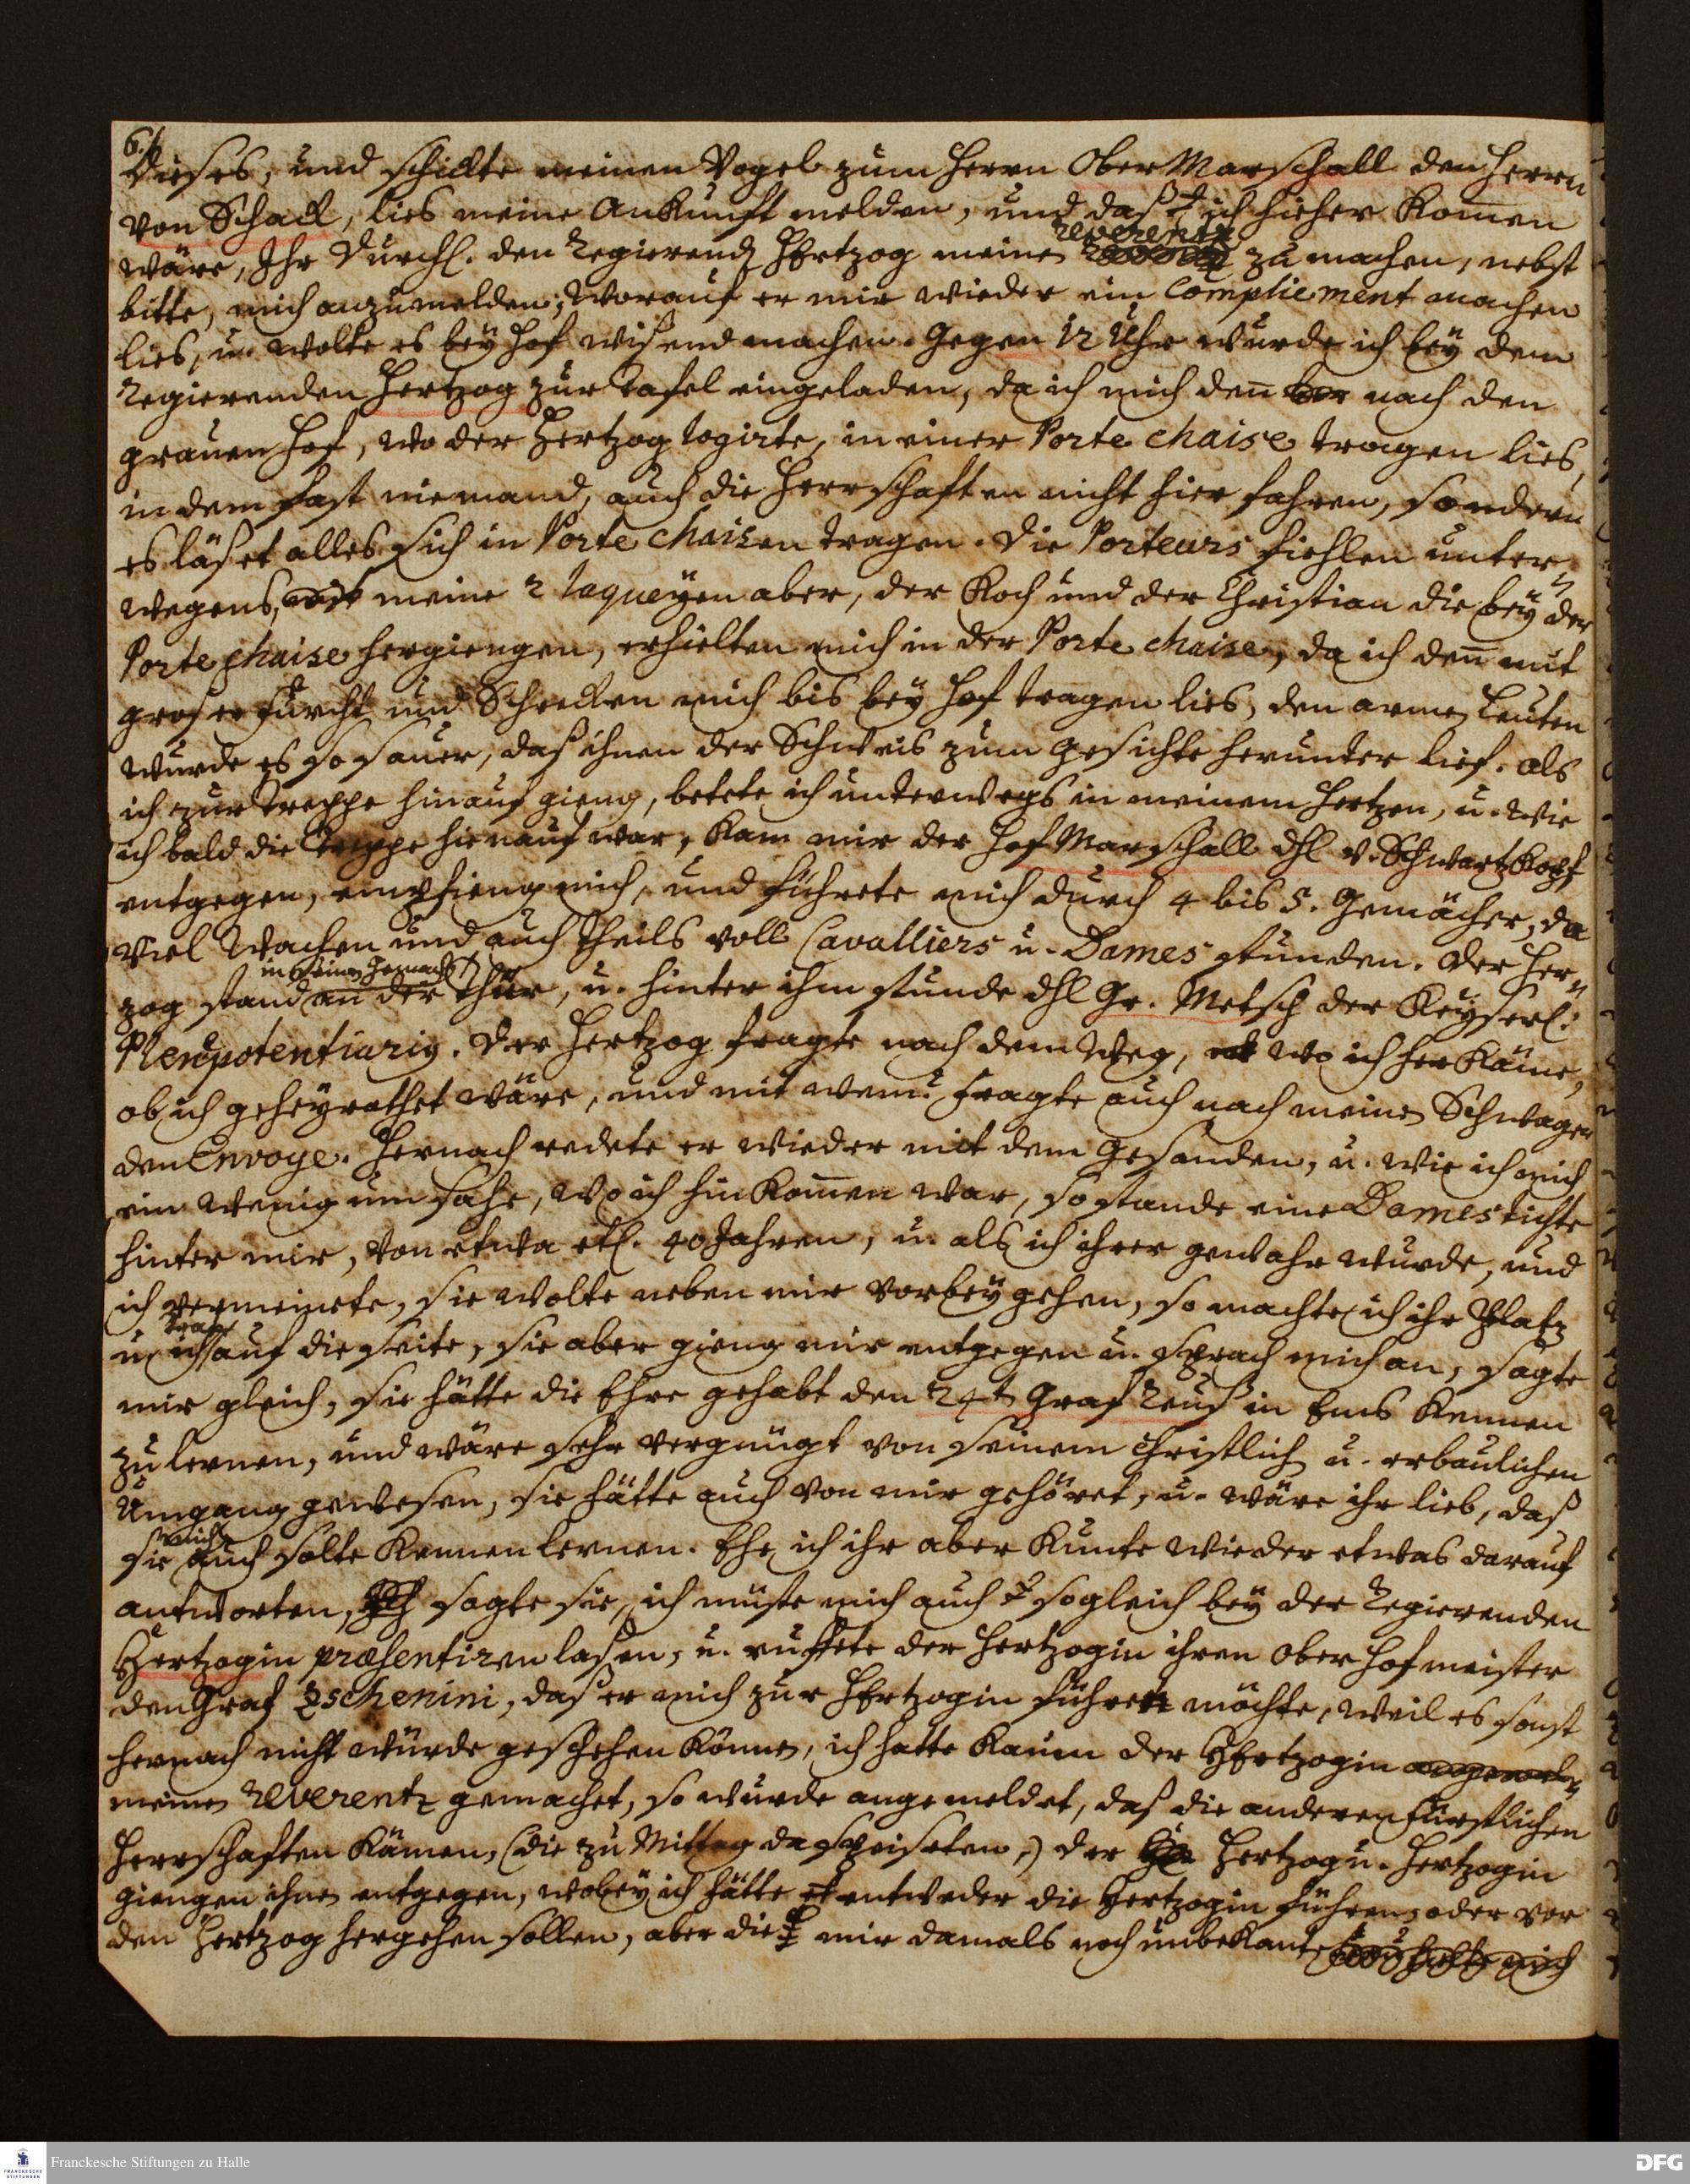 6.
dieses, und schickte meinen Vogel zum Herrn Ober Marschall den Herrn
von Schack, lies meine Ankunft melden, und daß ich hieher kom̅en
wäre, Ihr Durchl. den Regierend Hertzog meine reverentz zu machen, nebst
bitte, mich anzumelden; worauf er mir wieder ein Compliement machen
lies, u. wolte es bey Hof wißend machen. Gegen 12 Uhr wurde ich bey dem
Regierenden Hertzog zur Tafel eingeladen, da ich mich den̅ nach den
grauen Hof, wo der Hertzog logirte, in einer Porte chaise tragen lies,
in dem fast niemand, auch die Herrschafften nicht hier fahren, sondern
es läßet alles sich in Porte chaisen tragen. Die Porteurs fiehlen unter
wegens, meine 2 laqueyen aber, der Koch und der Christian die bey der
Porte chaise hergiengen, erhielten mich in der Porte chaise, da ich den̅ mit
großer Furcht und Schrecken mich bis bey Hof tragen lies, den armen Leuten
wurde es so sauer, daß ihnen der Schweis zum Gesichte herunter lief. Als
ich zur Treppe hinauf gieng, betete ich unterwegs in meinem Hertzen, u. wie
ich bald die Treppe hienauf war, kam mir der Hof Marschall v. Schwartzkopf
entgegen, empfieng mich, und führete mich durch 4 bis 5. Gemächer, da
viel Wachen und auch theils voll Cavalliers u. Dames stunden. Der Her-
zog stand in seinen Gemach an der Thür, u. hinter ihm stunde Gr. Metsch der Keyserl.
Plenipotentiariq. Der Hertzog fragte nach dem Weg, wo ich her käme,
ob ich geheyrathet wäre, und mit wem? fragte auch nach meinen Schwager
den Envoye. Hernach redete er wieder mit dem Gesanden, u. wie ich mich
ein wenig um sahe, wo ich hin kom̅en war, so stande eine Dames dichte
hinter mir, von etwa etl. 40 Jahren, u. als ich ihrer gewahr wurde, und
ich vermeinete, sie wolte neben mir vorbey gehen, so machte ich ihr Platz
u. trat auf die seite, sie aber gieng mir entgegen u. sprach mich an, sagte
mir gleich, sie hätte die Ehre gehabt den 24t Graf Reuß in Ems kennen
zu lernen, und wäre sehr vergnügt von seinem christlich u. erbaulichen
Umgang gewesen, sie hätte auch von mir gehöret, u. wäre ihr lieb, daß
sie mich auch solte kennen lernen. Ehe ich ihr aber kunte wieder etwas darauf
antworten, sagte sie, ich müste mich auch sogleich bey der Regierenden
Hertzogin præsentiren laßen, u. ruffete der Hertzogin ihren Ober Hofmeister
den Graf Zschenini, daß er mich zur Hertzogin führen möchte, weil es sonst
hernach nicht würde geschehen können, ich hatte kaum der Hertzogin
meine reverentz gemachet, so wurde angemeldet, daß die anderen Fürstlichen
Herrschaften kämen, (die zu Mittag da speiseten,) der Hertzog u. Hertzogin
giengen ihnen entgegen, wobey ich hätte entweder die Hertzogin führen, oder vor
den Hertzog hergehen sollen, aber die mir damals noch unbekante
Franckesche Stiftungen zu Halle
DFG